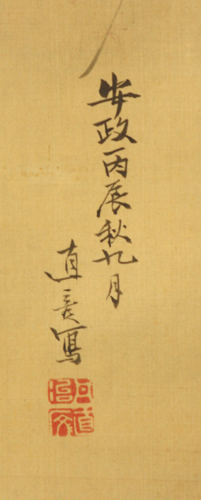 安政丙辰秋九月
直彦寫